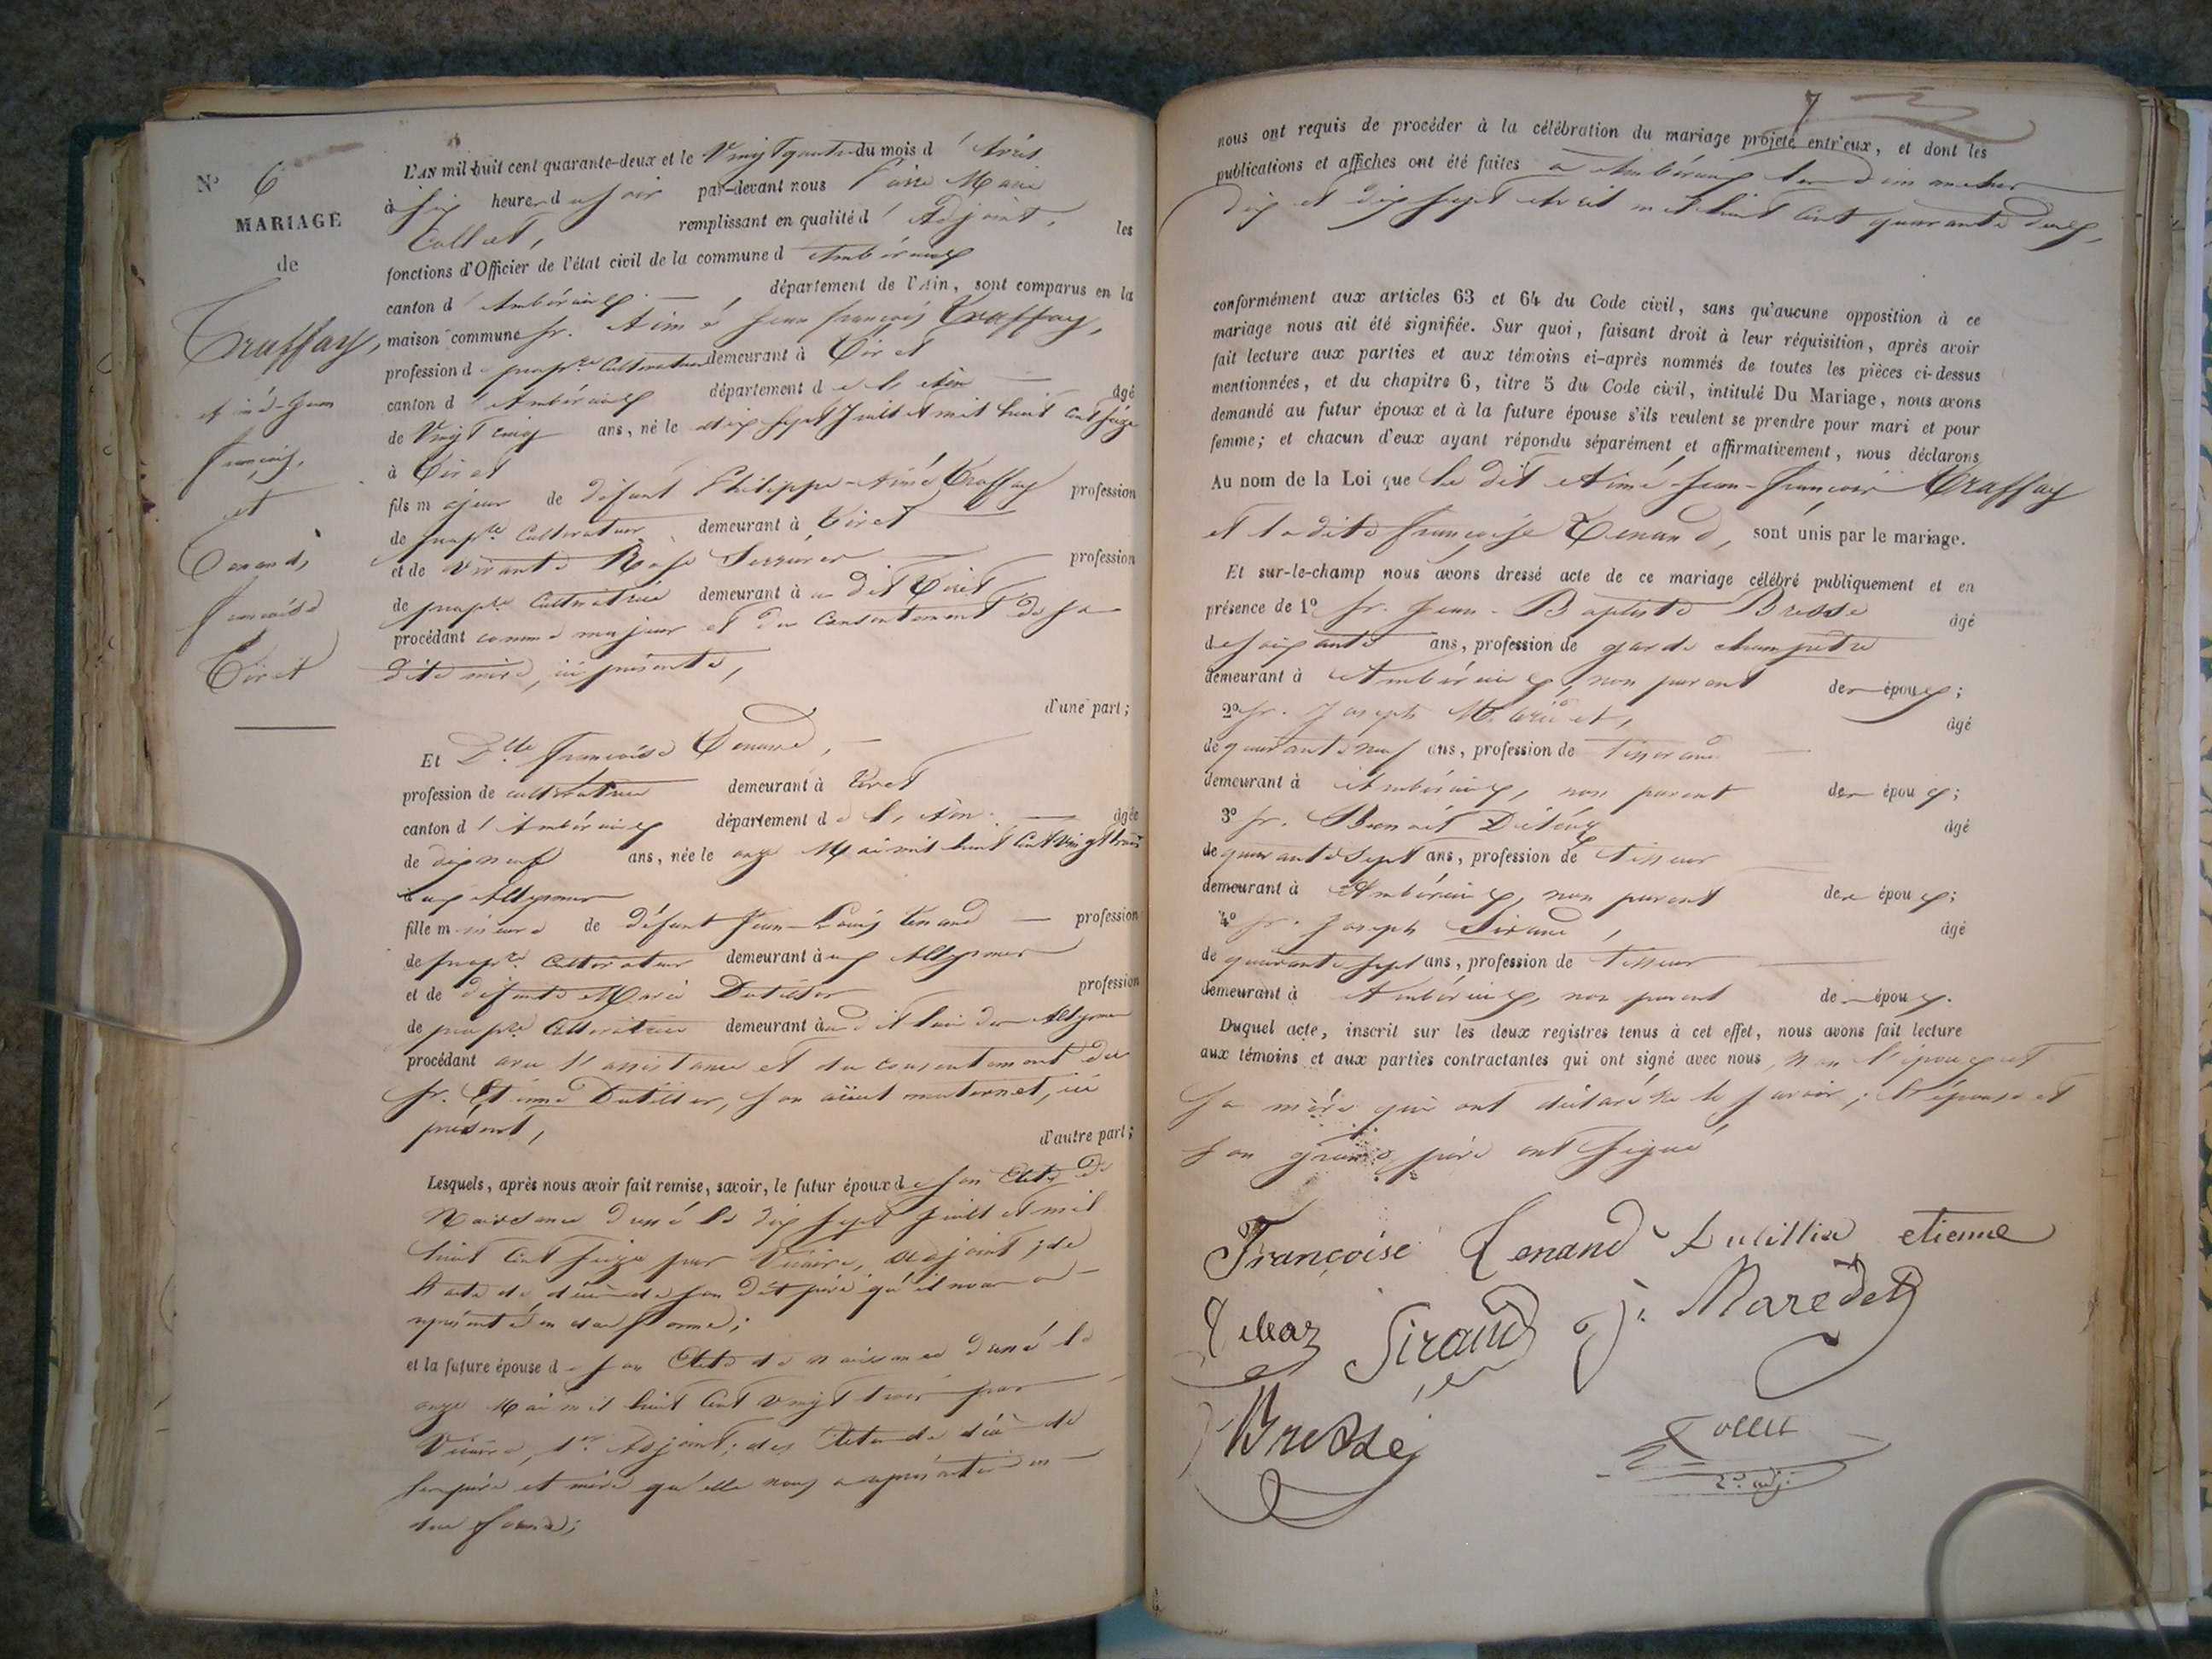 N° 6
MARIAGE
de
Traffay,
Aimé-Jean
françois,
et
Tenand,
françoise
Tiret
L'AN mil huit cent quarante-deux et le Vingt quatre du mois d'Avril
à six heures du soir par-devant nous Pierre Marie
Tollet, remplissant en qualité d'Adjoint, les
fonctions d'Officier de l'état civil de la commune d'Ambérieux
canton d'Ambérieux, département de l'Ain, sont comparus en la
maison commune Sr. Aimé Jean françois Traffay,
profession de propre Cultivateur demeurant à Tiret
canton d'Ambérieux département de l'Ain âgé
de Vingt cinq ans, né le dix sept Juillet mil huit cent seize
à Tiret
fils majeur de défunt Philippe-Aimé Traffay profession
de propre Cultivateur demeurant à Tiret
et de vivante Rose profession
de propre Cultivatrice demeurant à u dit Tiret
procédant comme majeur et du Consentement de sa
dite mère, ici présente,
d'une part;
Et Dlle françoise Tenand,
profession de cultivatrice demeurant à Tiret
canton d'Ambérieux département de l'Ain âgée
de dix neuf ans, née le onze Mai mil huit Cent vingt trois
aux Allymes
fille mineure de défunt Jean-Louis Tenand profession
de propre Cultivateur demeurant à ux Allymes
et de défunte Marie Dutillier profession
de propre Cultivatrice demeurant à u dit lieu des Allymes
procédant avec l'assistance et du consentement du
Sr. Etienne Dutillier, son aïeul maternel, ici
présent,
d'autre part;
Lesquels, après nous avoir fait remise, savoir, le futur époux de son Acte de
Naissance dressé le dix sept Juillet mil
huit Cent seize par adjoint; de
l'acte de décès de son dit père qu'il nous a
représenté en due forme;
et la future épouse de son Acte de naissance dressé le
onze Mai mil huit Cent vingt trois par
1er Adjoint; des Actes de décès de
ses père et mère qu'elle nous a représentés en
due forme;
7
nous ont requis de procéder à la célébration du mariage projeté entr'eux, et dont les
publications et affiches ont été faites à Ambérieux les dimanches
dix et dix sept Avril mil huit Cent quarante deux,
conformément aux articles 63 et 64 du Code civil, sans qu'aucune opposition à ce
mariage nous ait été signifiée. Sur quoi, faisant droit à leur réquisition, après avoir
fait lecture aux parties et aux témoins ci-après nommés de toutes les pièces ci-dessus
mentionnées, et du chapitre 6, titre 5 du Code civil, intitulé Du Mariage, nous avons
demandé au futur époux et à la future épouse s'ils veulent se prendre pour mari et pour
femme; et chacun d'eux ayant répondu séparément et affirmativement, nous déclarons
Au nom de la Loi que le dit Aimé-Jean-françois Traffay
et la dite françoise Tenand, sont unis par le mariage.
Et sur-le-champ nous avons dressé acte de ce mariage célébré publiquement et en
présence de 1° Sr. Jean-Baptiste Bressé âgé
de soixante ans, profession de garde champêtre
demeurant à Ambérieux, non parent des époux;
2° Sr. Joseph âgé
de quarante neuf ans, profession de Tisserand
demeurant à Ambérieux, non parent des époux;
3° Sr. Benoît âgé
de quarante sept ans, profession de Tisseur
demeurant à Ambérieux, non parent des époux;
4° Sr. Joseph Sirand, âgé
de quarante sept ans, profession de Tisseur
demeurant à Ambérieux, non parent des époux.
Duquel acte, inscrit sur les deux registres tenus à cet effet, nous avons fait lecture
aux témoins et aux parties contractantes qui ont signé avec nous, non l'époux et
sa mère qui ont déclaré ne le savoir; l'épouse et
son grand père ont signé
Françoise Tenand Dutillier etienne
Sirand J. Maredet
Bressé
Tollet
2d. adj.